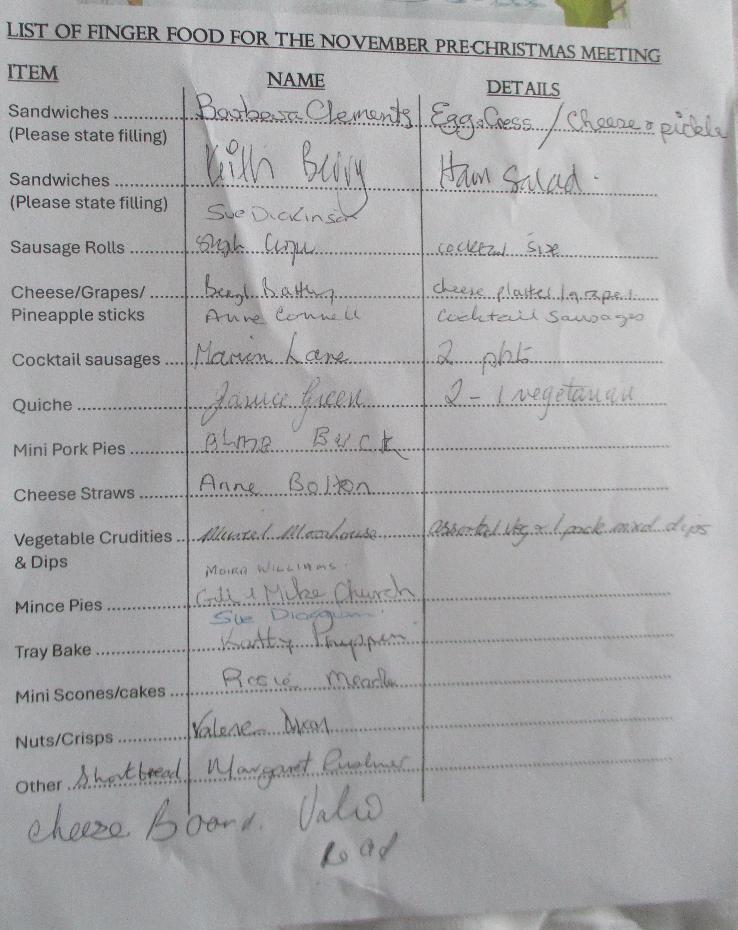 LIST OF FINGER FOOD FOR THE NOVEMBER PRE-CHRISTMAS MEETING
ITEM NAME DETAILS
Sandwiches Barbara Clements Egg & Cress / Cheese & pickle
(Please state filling)
Sandwiches Keith Berry Ham Salad.
(Please state filling)
Sue Dickinson
Sausage Rolls cocktail size
Cheese/Grapes/ Beryl Battery cheese platter / grapes
Pineapple sticks Anne Connell Cocktail Sausages
Cocktail sausages Marion Lane 2 pkts
Quiche Janice Green 2 - 1 vegetarian
Mini Pork Pies Alma Buck
Cheese Straws Anne Bolton
Vegetable Crudities Muriel Moorhouse assorted veg & 1 pack mixed dips
& Dips
Moira Williams.
Mince Pies Gill & Mike Church
Sue
Tray Bake Kathy
Mini Scones/cakes Rosie
Nuts/Crisps Valerie
Other Shortbread Margaret
Cheese Board.
Road